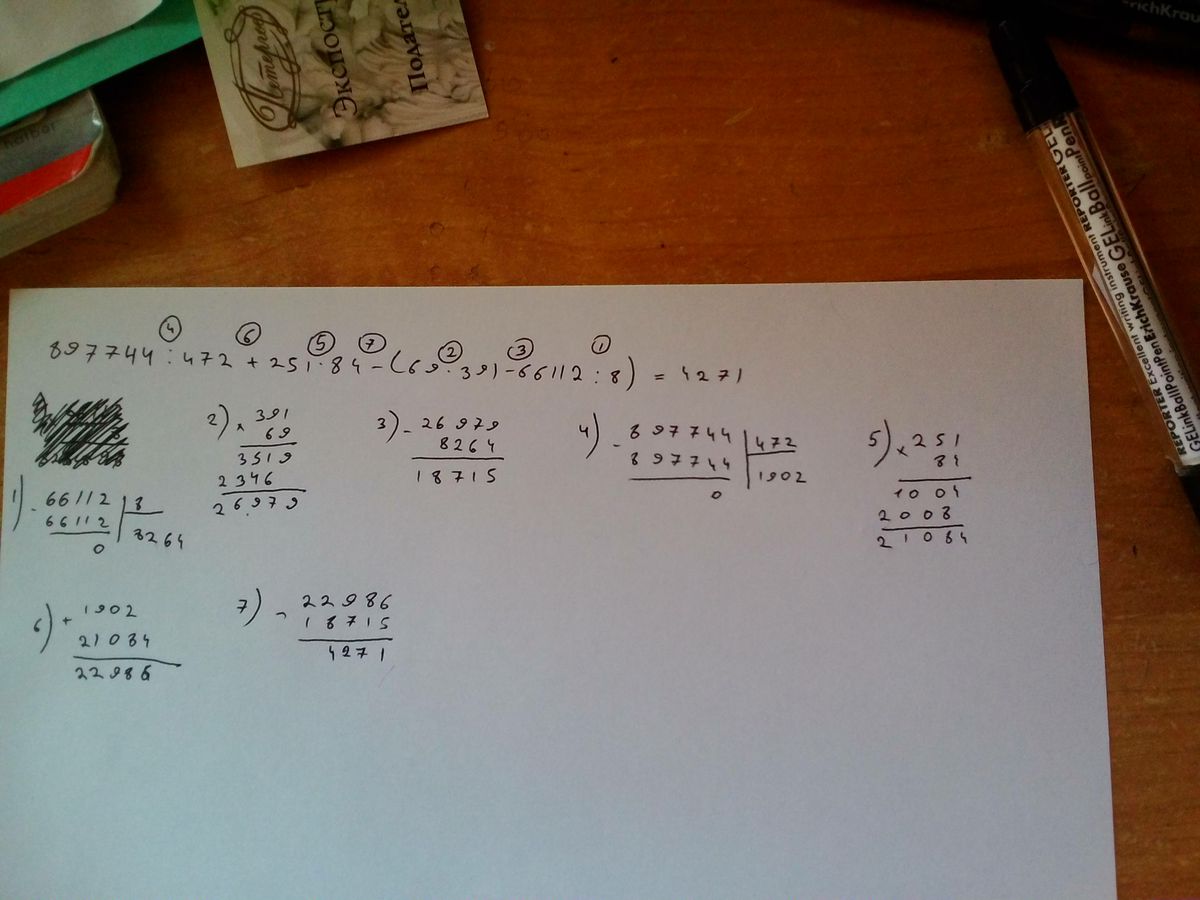 Петергоф
Экспост
Подател
ErichKrau
REPORTER GEL Ink Ball point Pen
Excellent writing instrument REPORTER GEL Ink Ball point Pen ErichKrause
④ ⑥ ⑤ ⑦ ② ③ ①
897744:472+251·84-(69·391-66112:8)=4271
1) - 66112 | 8
66112 | 8264
0
2) × 391
69
3519
2346
26979
3) - 26979
8264
18715
4) - 897744 | 472
897744 | 1902
0
5) × 251
84
1004
2008
21084
6) + 1902
21084
22986
7) - 22986
18715
4271